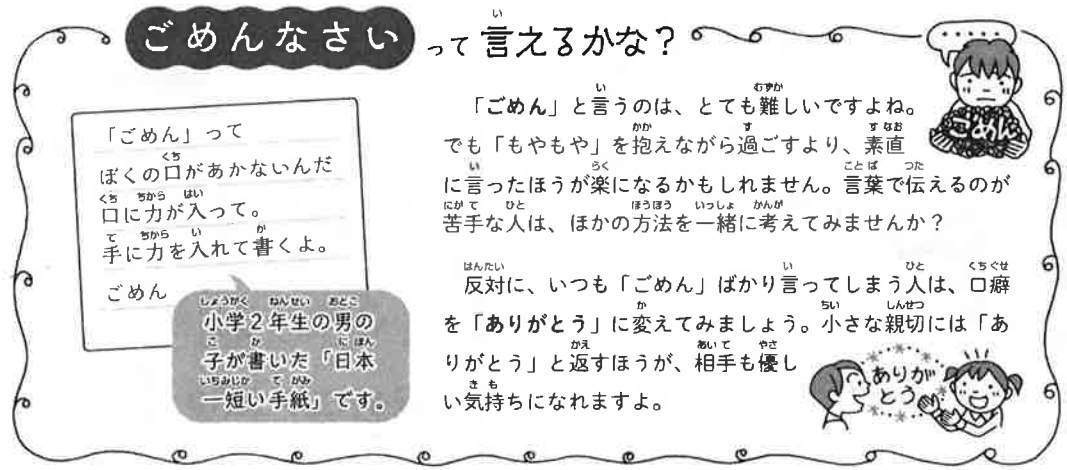 ごめんなさいって言えるかな？
「ごめん」って
ぼくの口があかないんだ
口に力が入って。
手に力を入れて書くよ。
ごめん
小学2年生の男の
子が書いた「日本
一短い手紙」です。
「ごめん」と言うのは、とても難しいですよね。
でも「もやもや」を抱えながら過ごすより、素直
に言ったほうが楽になるかもしれません。言葉で伝えるのが
苦手な人は、ほかの方法を一緒に考えてみませんか？
反対に、いつも「ごめん」ばかり言ってしまう人は、口癖
を「ありがとう」に変えてみましょう。小さな親切には「あ
りがとう」と返すほうが、相手も優し
い気持ちになれますよ。
・・・・・
ごめん
ありが
とう